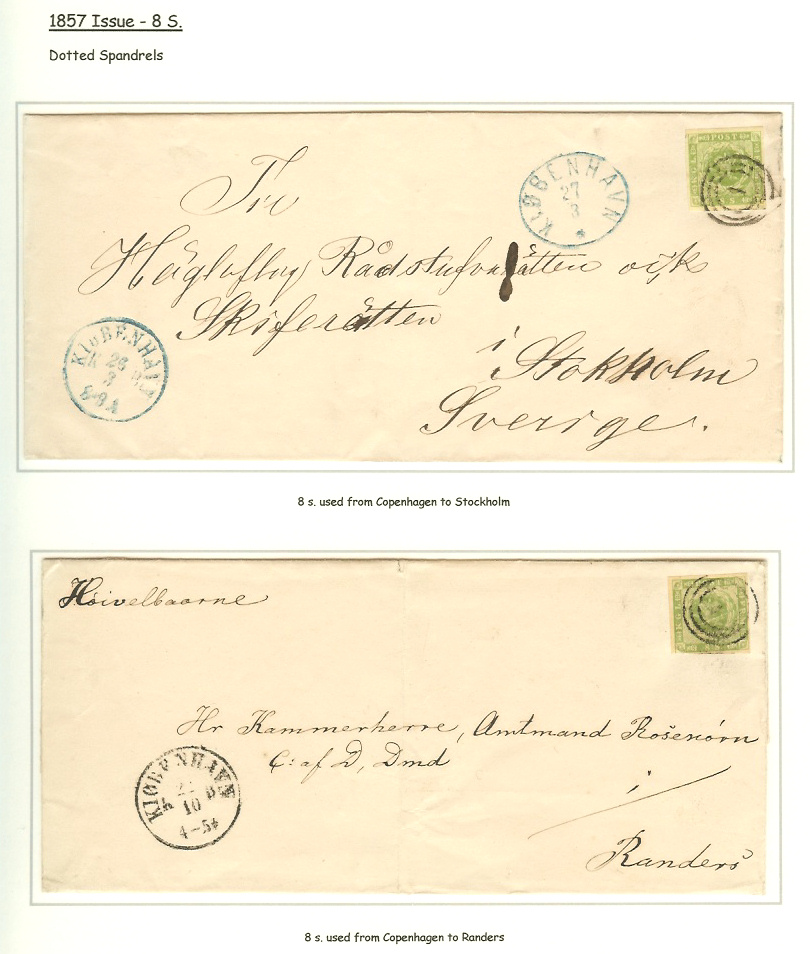 1857 Issue - 8 S.
Dotted Spandrels
POST
KIØBENHAVN
27
3
Rådstufvurätten
Skiferätten
i Stokholm
Sverige.
KIØBENHAVN
26
3
8-9
8 s. used from Copenhagen to Stockholm
Høivelbaarne
Hr Kammerherre, Amtmand Rosenørn
C: af D, Dmd
i
Randers
KIØBENHAVN
10
4-5
8 s. used from Copenhagen to Randers